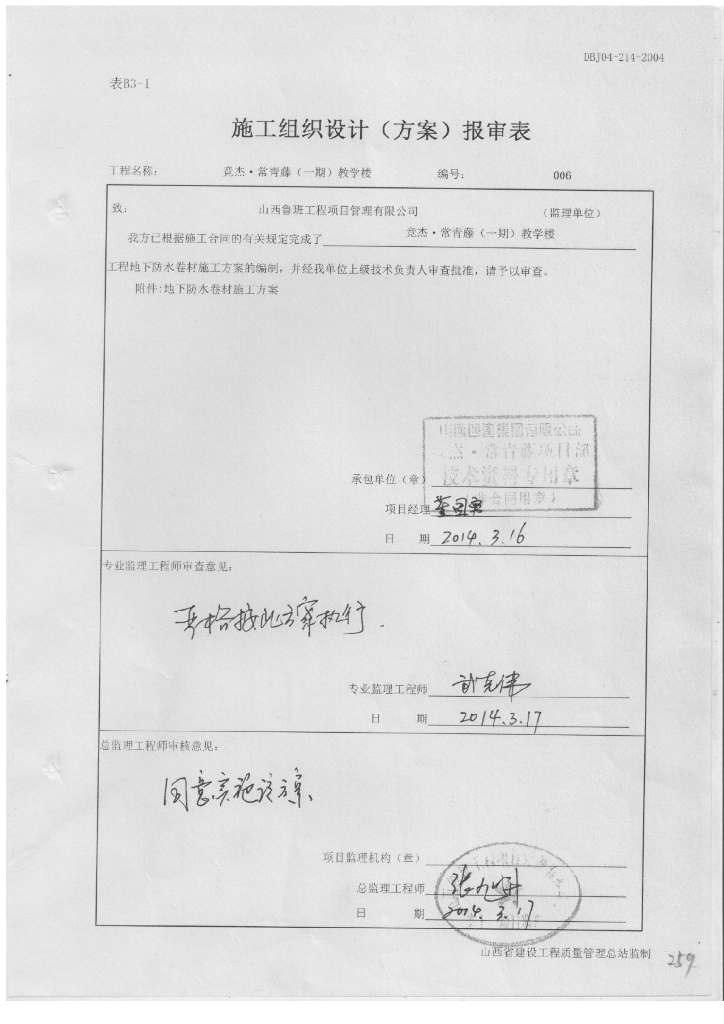 DBJ04-214-2004
表B3-1
施工组织设计（方案）报审表
工程名称： 竞杰·常青藤（一期）教学楼 编号： 006
致： 山西鲁班工程项目管理有限公司 （监理单位）
我方已根据施工合同的有关规定完成了 竞杰·常青藤（一期）教学楼
工程地下防水卷材施工方案的编制，并经我单位上级技术负责人审查批准，请予以审查。
附件:地下防水卷材施工方案
常青藤项目部
承包单位（章） 技术资料专用章
项目经理 （非合同用章）
日 期 2014.3.16
专业监理工程师审查意见：
严格按此方案执行.
专业监理工程师
日 期 2014.3.17
总监理工程师审核意见：
同意实施该方案、
项目监理机构（章）
总监理工程师
日 期 2014.3.17
山西省建设工程质量管理总站监制
259